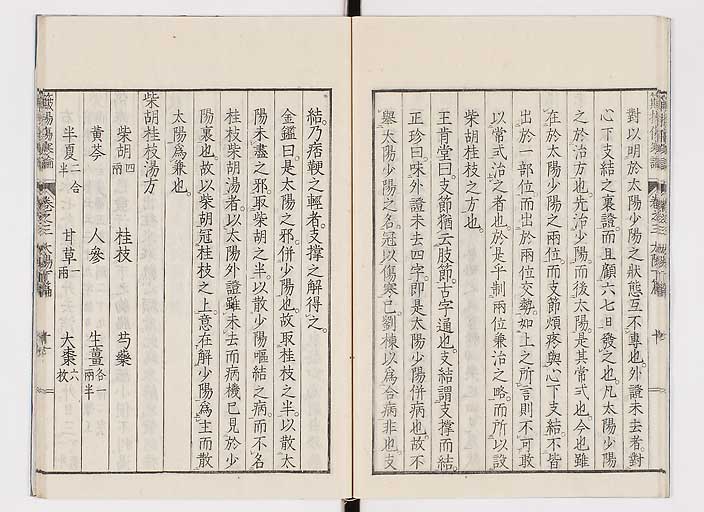 對以明於太陽少陽之狀態互不專也外證未去者對
心下支結之裏證而且顧六七日發之也凡太陽少陽
之於治方也先治少陽而後太陽是其常式也今也雖
在於太陽少陽之兩位而支節煩疼與心下支結不皆
出於一部位而出於兩位交勢如上之所言則不可敢
以常式治之者也於是乎制兩位兼治之略而所以設
柴胡桂枝之方也
王肯堂曰支節猶云肢節古字通也支結謂支撐而結
正珍曰味外證未去四字即是太陽少陽併病也故不
舉太陽少陽之名冠以傷寒已劉棟以爲合病非也支
結乃痞鞕之輕者支撐之解得之
金鑑曰是太陽之邪併少陽也故取桂枝之半以散太
陽未盡之邪取柴胡之半以散少陽嘔結之病而不名
桂枝柴胡湯者以太陽外證雖未去而病機已見於少
陽裏也故以柴胡冠桂枝之上意在解少陽爲主而散
太陽爲兼也
柴胡桂枝湯方
柴胡四兩 桂枝 芍藥
黃芩 人參 生薑各一兩半
半夏二合半 甘草一兩 大棗六枚
卷之三 太陽下篇